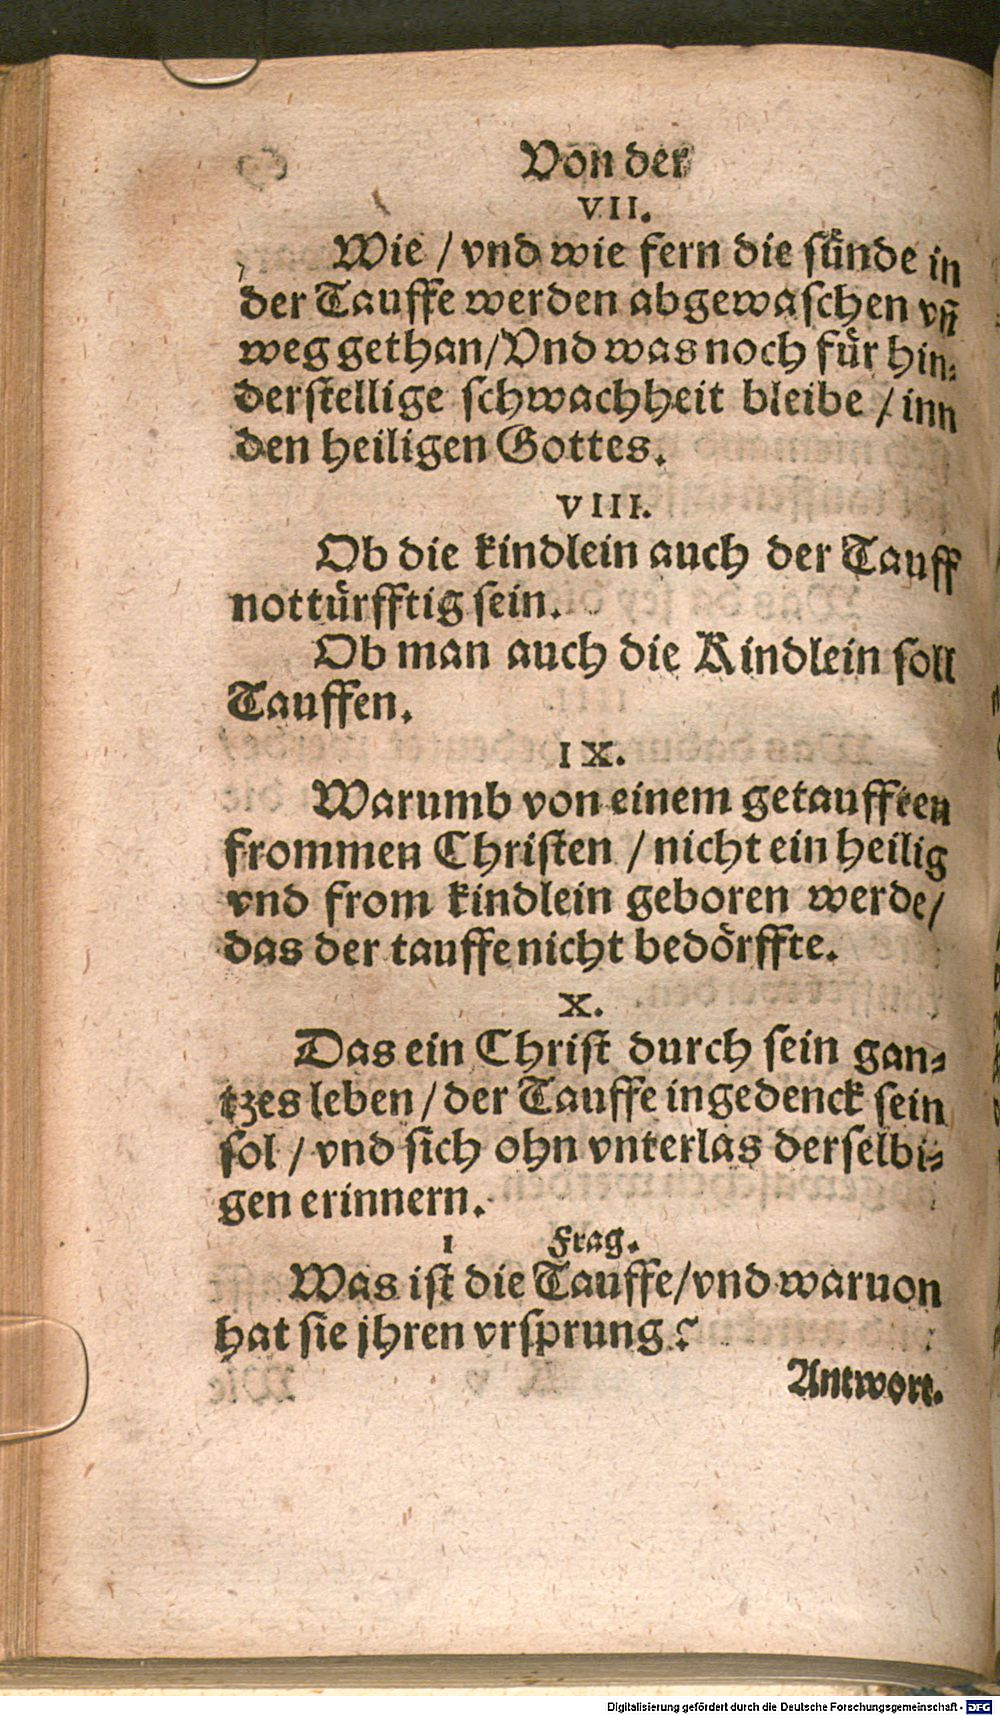 Von der
VII.
Wie / vnd wie fern die sünde in
der Tauffe werden abgewaschen vñ
weg gethan/Vnd was noch für hin⸗
derstellige schwachheit bleibe / inn
den heiligen Gottes.
VIII.
Ob die kindlein auch der Tauff
nottürfftig sein.
Ob man auch die Kindlein soll
Tauffen.
IX.
Warumb von einem getaufften
frommen Christen / nicht ein heilig
vnd from kindlein geboren werde/
das der tauffe nicht bedörffte.
X.
Das ein Christ durch sein gan⸗
tzes leben / der Tauffe ingedenck sein
sol / vnd sich ohn vnterlas derselbi⸗
gen erinnern.
I Frag.
Was ist die Tauffe/vnd waruon
hat sie jhren vrsprung?
Antwort.
Digitalisierung gefördert durch die Deutsche Forschungsgemeinschaft - DFG